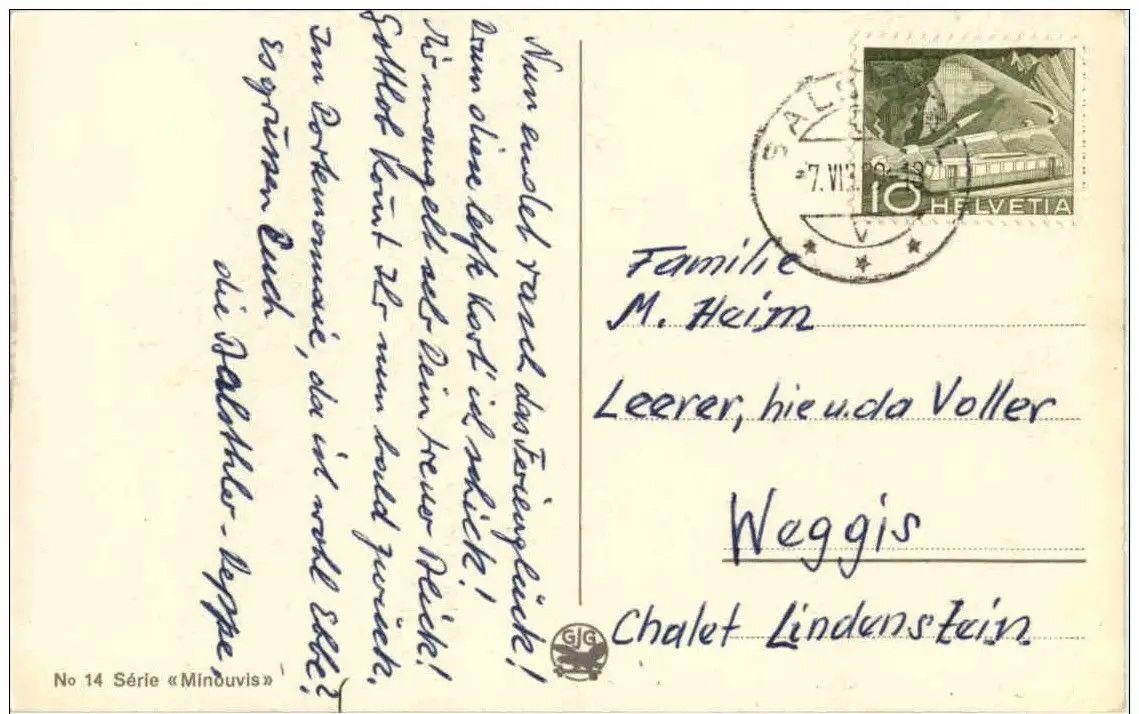 Nun endet rasch das Ferienglück!
Drum diese letzte Kart' ich schick!
Mir mangelt sehr Dein treuer Blick!
Gottlob kommt Ihr nun bald zurück.
Im Portemonnaie, da ist wohl Ebbe?
Es grüssen Euch
die Balsthler-
No 14 Série «Minouvis»
GJG
BALSTHAL
7. VIII.
10 HELVETIA
Familie
M. Heim
Leerer, hie u. da Voller
Weggis
Chalet Lindenstein